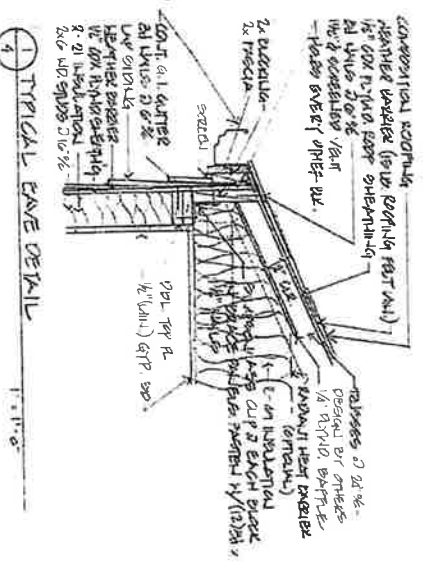 COMPOSITION ROOFING
WEATHER BARRIER (15LB. ROOFING FELT MIN)
1/2" CDX PLYWD. ROOF SHEATHING
8d NAILS @ 6"
1 1/2" Ø SCREENED VENT
HOLES EVERY OTHER BLK.
2x BLOCKING
2x FASCIA
SCREEN
CONT. G.I. GUTTER
8d NAILS @ 6"
LAP SIDING
WEATHER BARRIER
1/2" CDX PLYWD SHEATHING
R-21 INSULATION
2x6 WD. STUDS @ 16"
TRUSSES @ 24"
DESIGN BY OTHERS
1/4" PLYWD. BAFFLE
RADIANT HEAT BARRIER
(OPTIONAL)
INSULATION
CLIP @ EACH BLOCK
DBL TOP PL
1/2" (MIN) GYP. BD
1
4
TYPICAL EAVE DETAIL
1" = 1'-0"